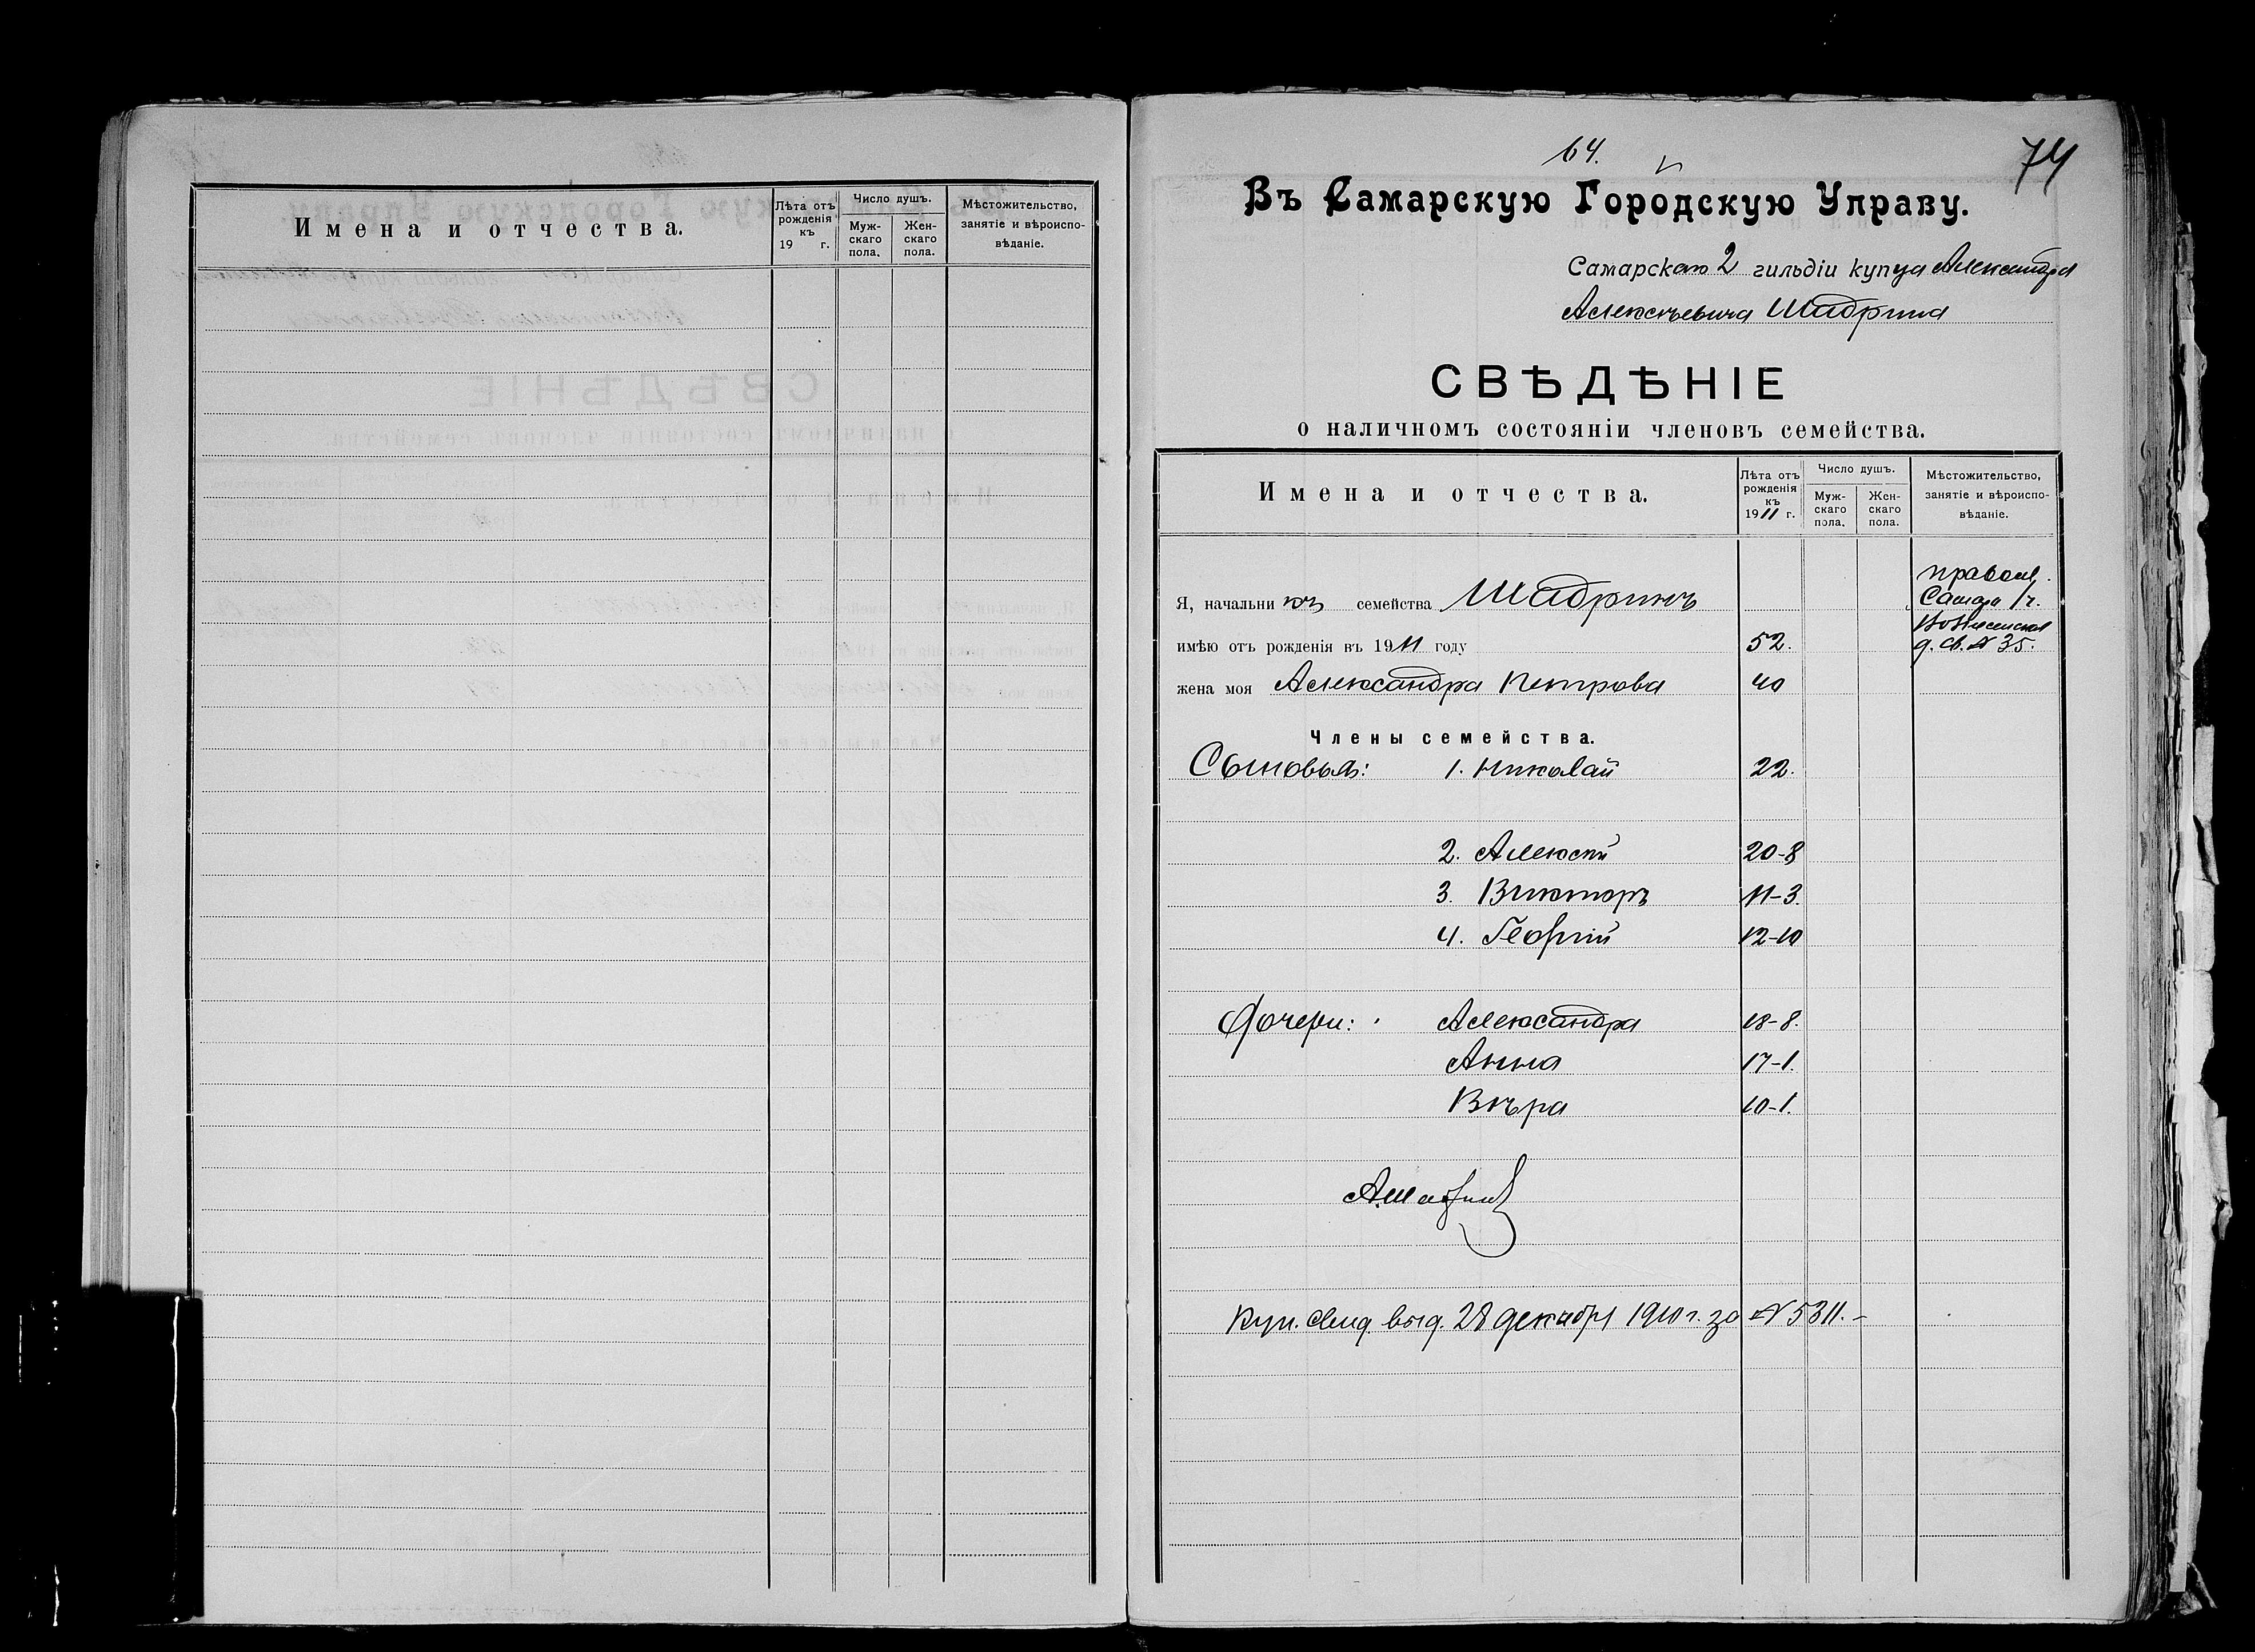 Имена и отчества.
Лѣта отъ рожденія къ 19 г.
Число душъ.
Мужскаго пола.
Женскаго пола.
Мѣстожительство, занятіе и вѣроисповѣданіе.
64.
74
Въ Самарскую Городскую Управу.
Самарскаго 2 гильдіи купца Александра
Алексѣевича Шадрина
СВѢДѢНІЕ
о наличномъ состояніи членовъ семейства.
Имена и отчества.
Лѣта отъ рожденія къ 1911 г.
Число душъ.
Мужскаго пола.
Женскаго пола.
Мѣстожительство, занятіе и вѣроисповѣданіе.
правосл.
Я, начальникъ семейства Шадринъ Самара 1 ч.
Вознесенская
имѣю отъ рожденія въ 1911 году 52. д. св. № 35.
жена моя Александра Петрова 40
Члены семейства.
Сыновья: 1. Николай 22.
2. Алексѣй 20-8
3. Викторъ 11-3.
4. Георгій 12-10
Дочери: Александра 18-8.
Анна 17-1.
Вѣра 10-1.
А.Шадринъ
Куп. свид. выд. 28 декабря 1910 г. за № 5311.-